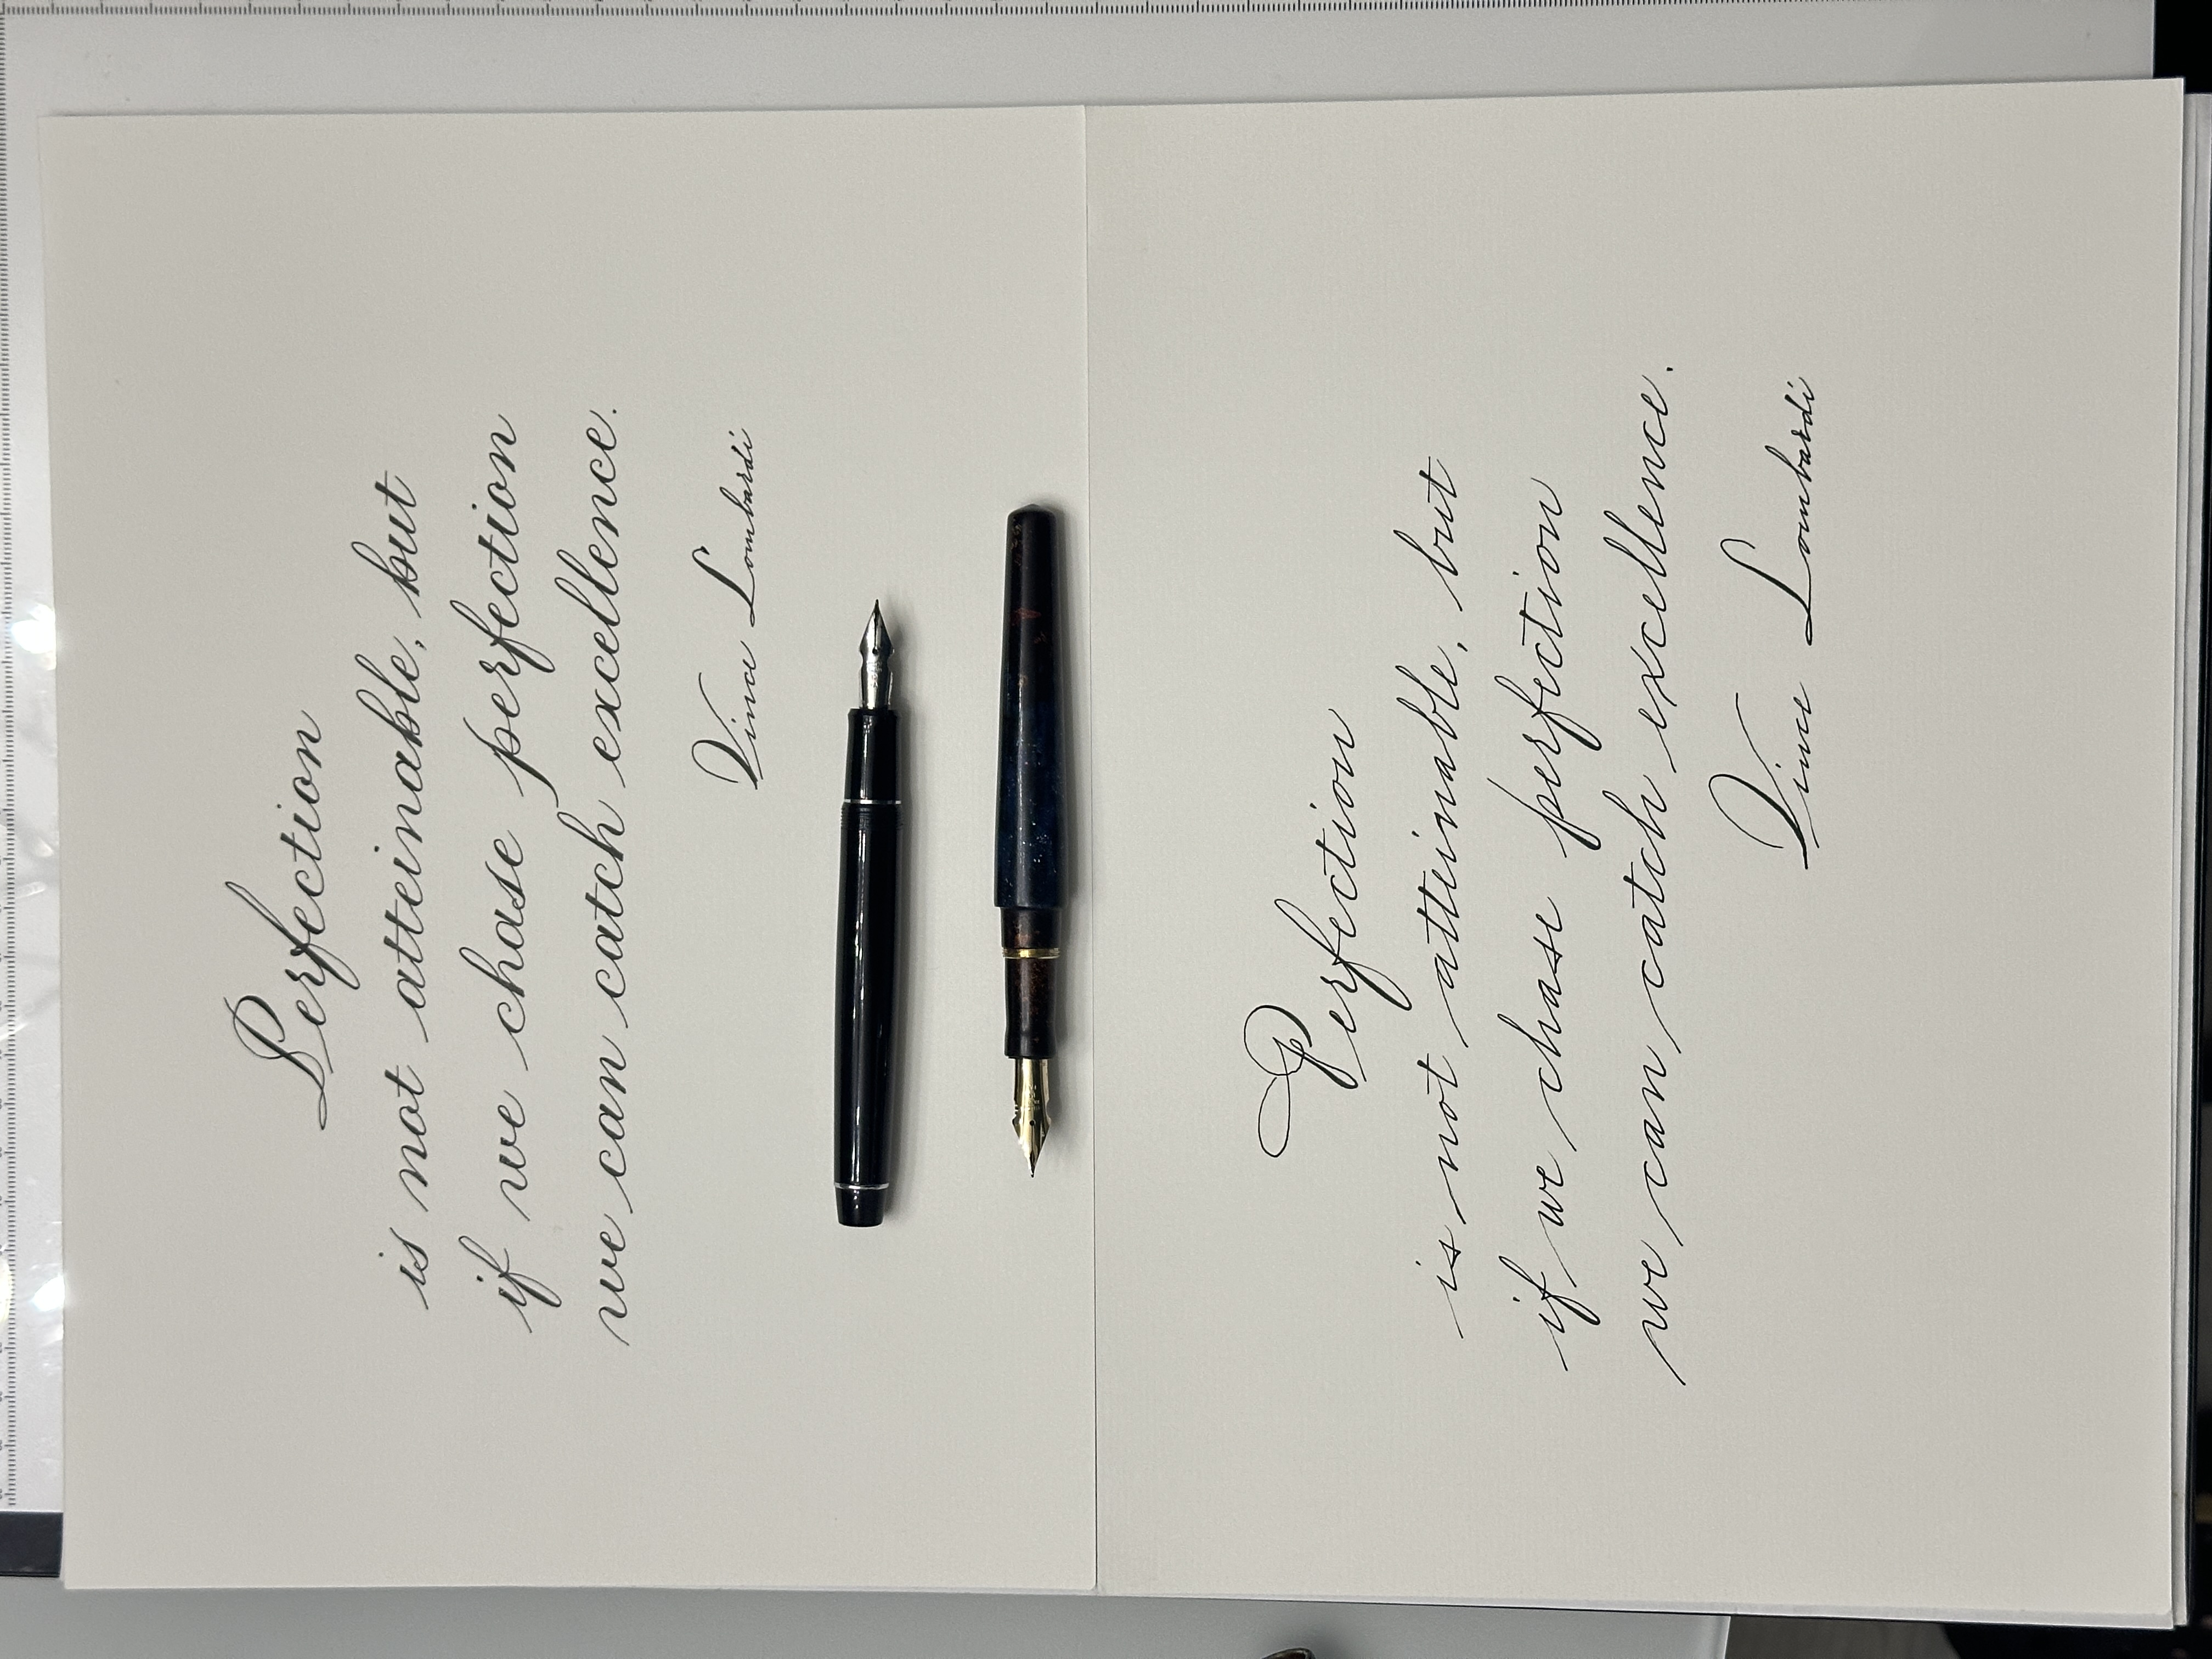 Perfection
is not atteinable, but
if we chase perfection
we can catch excellence.
Vince Lombardi
Perfection
is not attinable, but
if we chase perfection
we can catch excellence.
Vince Lombardi